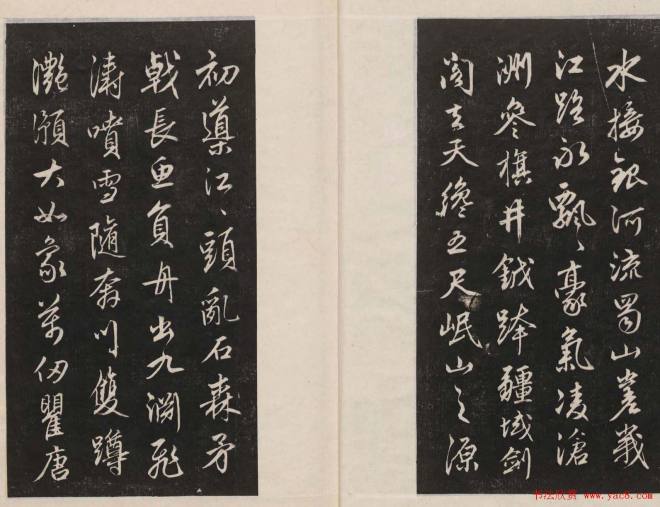 水接銀河流蜀山嵯峩
江路永飄〻豪氣凌滄
洲參旗井鉞跨疆域劍
閣去天纔五尺岷山之源
初導江〻頭亂石森矛
戟長魚負舟出九淵飛
濤噴雪隨奔川雙蹲
灧澦大如象萬仞瞿唐
书法欣赏 www.yac8.com